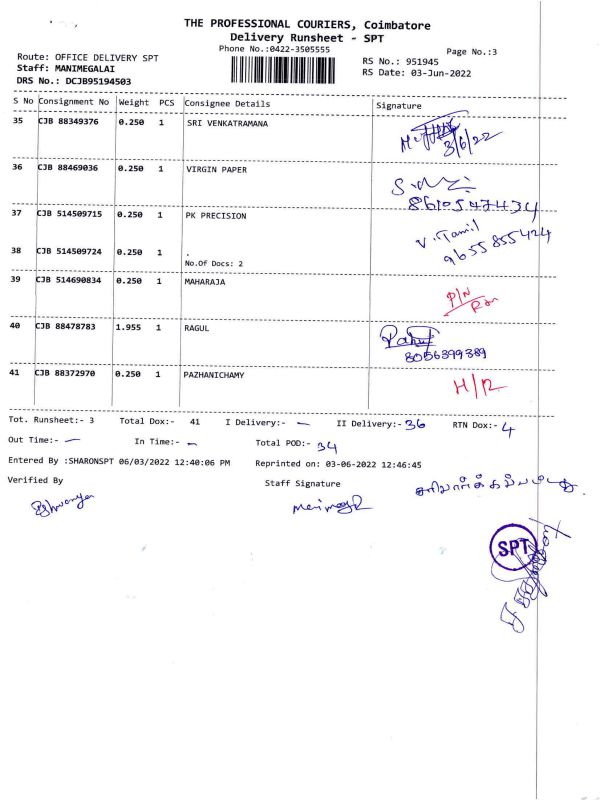 THE PROFESSIONAL COURIERS, Coimbatore
Delivery Runsheet - SPT
Phone No.:0422-3505555
Page No.:3
Route: OFFICE DELIVERY SPT
Staff: MANIMEGALAI
DRS No.: DCJB95194503
RS No.: 951945
RS Date: 03-Jun-2022
S No Consignment No Weight PCS Consignee Details Signature
35 CJB 88349376 0.250 1 SRI VENKATRAMANA
3/6/22
36 CJB 88469036 0.250 1 VIRGIN PAPER
8610547434
37 CJB 514509715 0.250 1 PK PRECISION
V. Tamil
9655855424
38 CJB 514509724 0.250 1 .
No.Of Docs: 2
39 CJB 514690834 0.250 1 MAHARAJA
P/N
40 CJB 88478783 1.955 1 RAGUL
8056399389
41 CJB 88372970 0.250 1 PAZHANICHAMY
H/R
Tot. Runsheet:- 3 Total Dox:- 41 I Delivery:- – II Delivery:- 36 RTN Dox:- 4
Out Time:- – In Time:- – Total POD:- 34
Entered By :SHARONSPT 06/03/2022 12:40:06 PM Reprinted on: 03-06-2022 12:46:45
Verified By Staff Signature
SPT